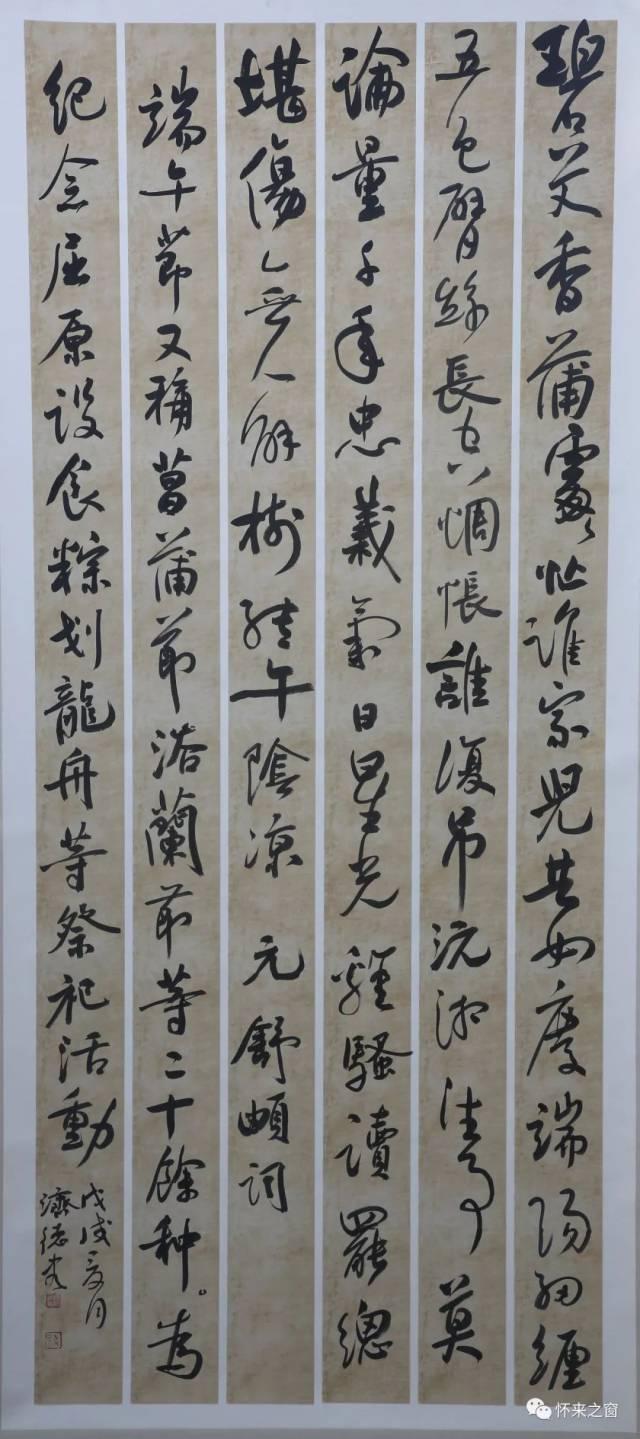 碧艾香蒲處々忙誰家兒共女慶端陽細纏
五色臂絲長空惆悵誰復吊沅湘往事莫
論量千年忠義氣日星光離騷讀罷總
堪傷無人解樹轉午陰凉 元舒頔詞
端午節又稱菖蒲節浴蘭節等二十餘种。為
紀念屈原設食粽划龍舟等祭祀活動
戊戌夏月
濟德書
怀来之窗